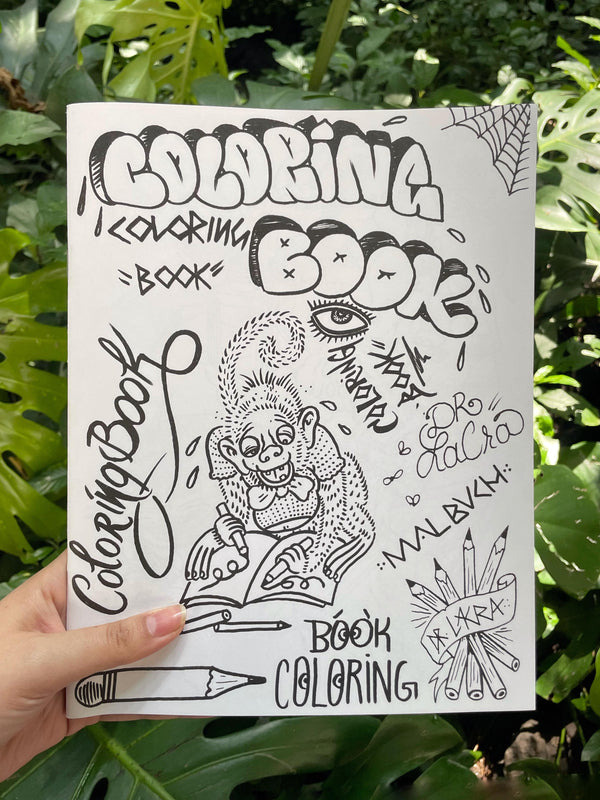 COLORING
COLORING
"BOOK"
BOOK
COLORING
BOOK
Coloring Book
DR
LaCra
MALBUCH
DR LAKRA
BOOK
COLORING